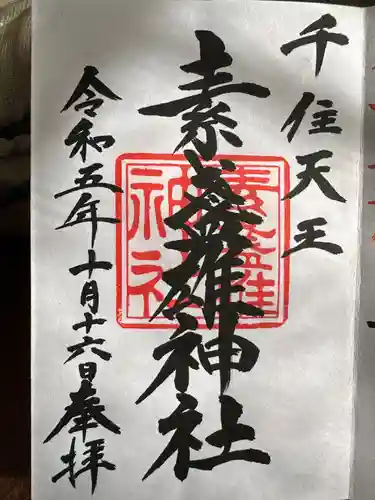 千住天王
素盞雄神社
素盞雄
神社
令和五年十月十六日奉拝